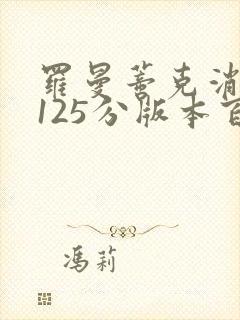 羅曼蒂克消
125分版本百
馮莉